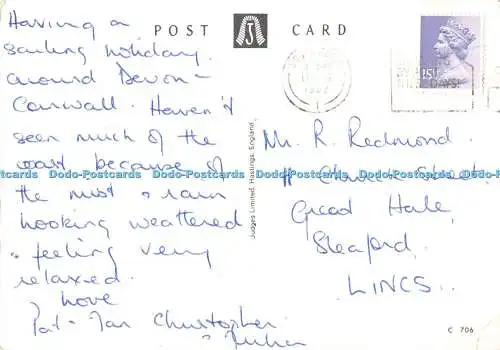 POST CARD
Having a
sailing holiday
around Devon -
Cornwall. Haven't
seen much of the
coast because of
the mist + rain
Looking weathered
+ feeling very
relaxed.
Love
Pat - Ian Christopher
+ Julian
Judges Limited, Hastings, England.
15P
DAYS
Mr R. Redmond.
11 Church Street,
Great Hale,
Sleaford.
LINCS..
C 706
Dodo-Postcards Dodo-Postcards Dodo-Postcards Dodo-Postcards Dodo-Postcards